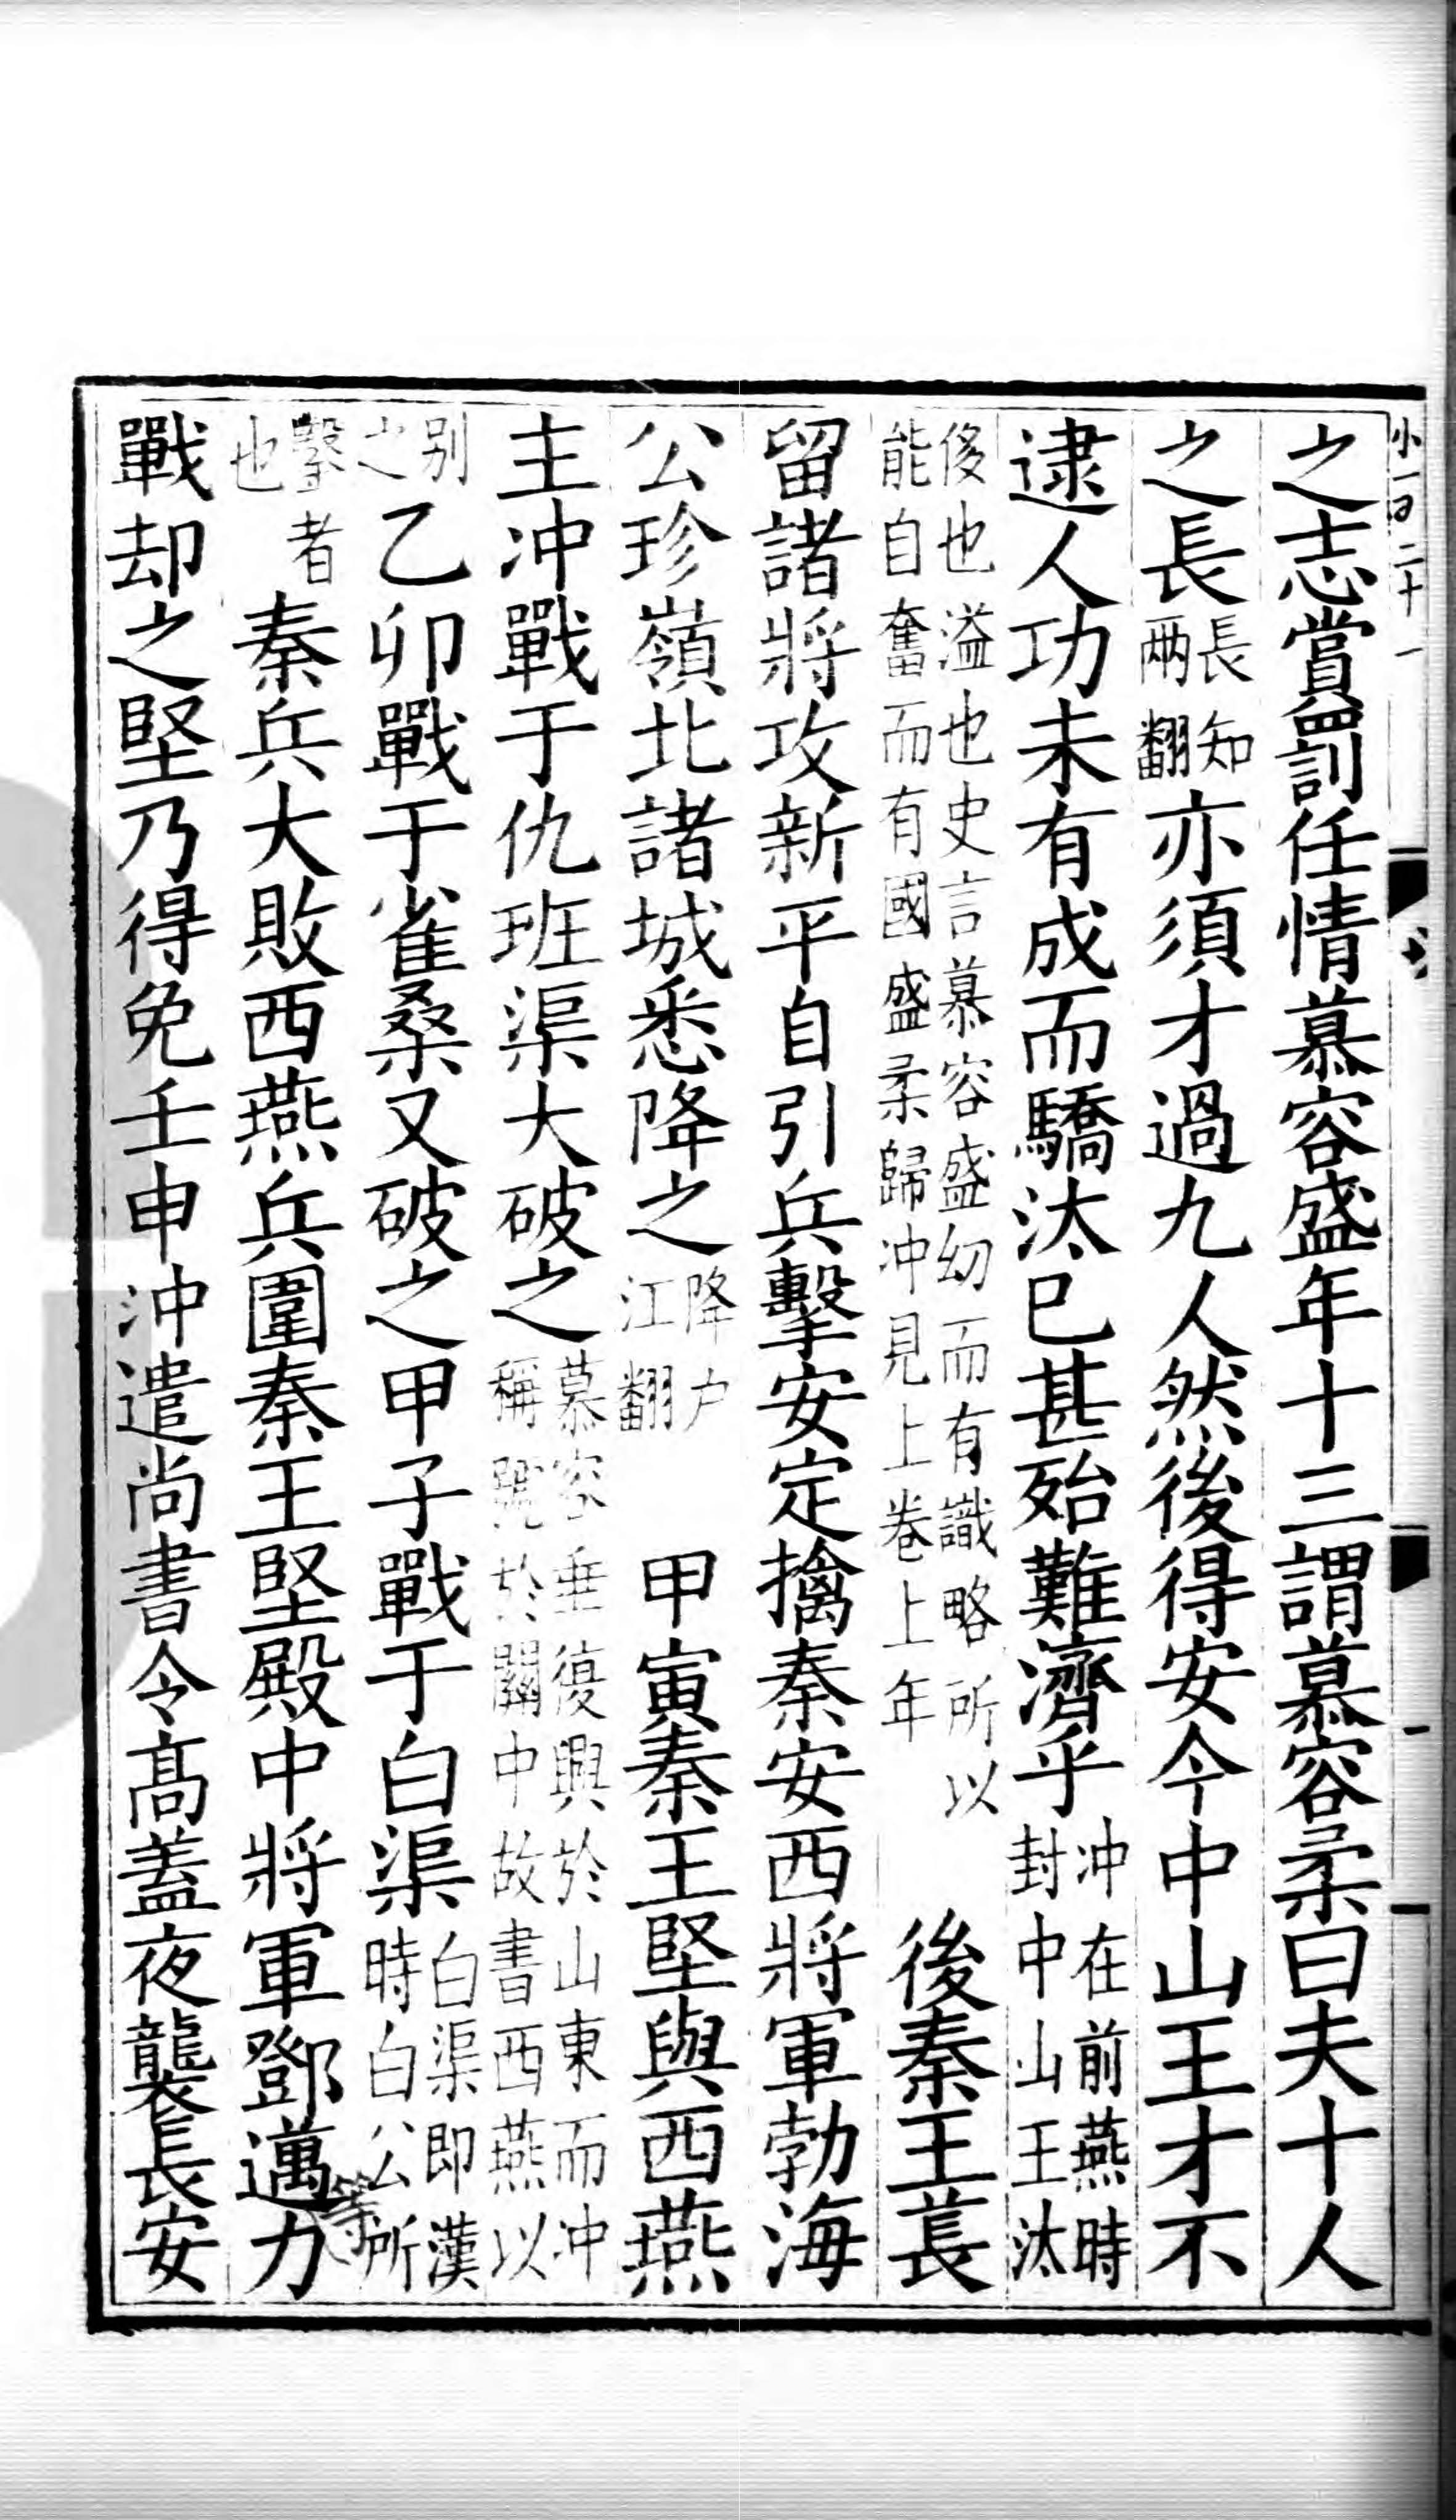 小一百二十一
之志賞罰任情慕容盛年十三謂慕容柔曰夫十人
之長長知兩翻亦須才過九人然後得安今中山王才不
逮人功未有成而驕汰已甚殆難濟乎冲在前燕時封中山王汰
侈也溢也史言慕容盛幼而有識略所以能自奮而有國盛柔歸冲見上卷上年後秦王萇
留諸將攻新平自引兵擊安定擒秦安西將軍勃海
公珍嶺北諸城悉降之降户江翻甲寅秦王堅與西燕
主冲戰于仇班渠大破之慕容垂復興於山東而冲稱號於關中故書西燕以
别之乙卯戰于雀桑又破之甲子戰于白渠白渠即漢時白公所
鑿者也秦兵大敗西燕兵圍秦王堅殿中將軍鄧邁力
戰却之堅乃得免壬申冲遣尚書令高蓋夜襲長安